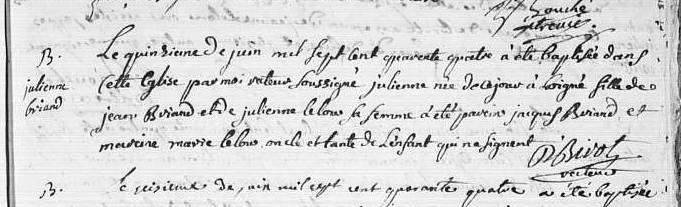 B.
julienne
briand
Le quinzieme de juin mil sept cent quarente quatre à été baptisée dans
cette Eglise par moi recteur soussigné julienne née de ce jour à fille de
jean Briand et de julienne lelou sa femme à été parein jacques Briand et
mareine marie lelou oncle et tante de L'enfant qui ne signent
recteur
B.
Le seisieme de juin mil sept cent quarante quatre a été baptisée